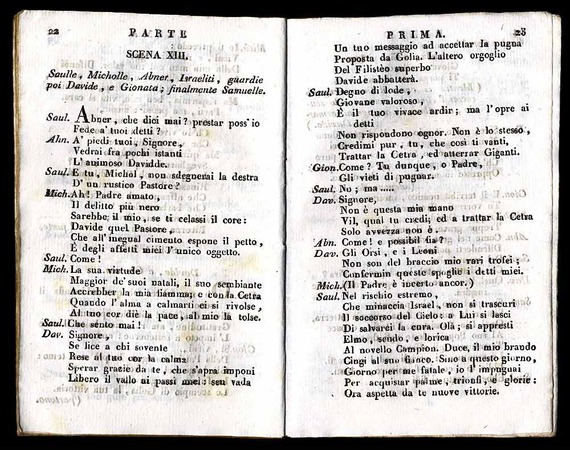 22 PARTE
SCENA XIII.
Saulle, Micholle, Abner, Israeliti, guardie
poi Davide, e Gionata; finalmente Samuelle.
Saul. Abner, che dici mai? prestar poss'io
Fede a' tuoi detti?
Abn. A' piedi tuoi, Signore,
Vedrai fra pochi istanti
L'animoso Davidde.
Saul. E tu, Michol, non sdegnerai la destra
D' un rustico Pastore?
Mich. Ah! Padre amato,
Il delitto più nero
Sarebbe il mio, se ti celassi il core:
Davide quel Pastore,
Che all'inegual cimento espone il petto,
È degli affetti miei l'unico oggetto.
Saul. Come!
Mich. La sua virtude
Maggior de' suoi natali, il suo sembiante
Accrebber la mia fiamma; e con la Cetra
Quando l'alma a calmarti ei si rivolse,
Al tuo cor diè la pace, al mio la tolse.
Saul. Che sento mai!
Dav. Signore,
Se lice a chi sovente
Rese al tuo cor la calma
Sperar grazie da te, che s'apra imponi
Libero il vallo ai passi miei: sen vada
PRIMA. 23
Un tuo messaggio ad accettar la pugna
Proposta da Golia. L'altero orgoglio
Del Filistèo superbo
Davide abbatterà.
Saul. Degno di lode,
Giovane valoroso,
È il tuo vivace ardir; ma l'opre ai
detti
Non rispondono ognor. Non è lo stesso,
Credimi pur, tu, che così ti vanti,
Trattar la Cetra, ed atterrar Giganti.
Gion. Come? Tu dunque, o Padre,
Gli vieti di pugnar.
Saul. No; ma.....
Dav. Signore,
Non è questa mia mano
Vil, qual tu credi; ed a trattar la Cetra
Solo avvezza non è.
Abn. Come! e possibil fia?
Dav. Gli Orsi, e i Leoni
Non son del braccio mio rari trofei;
Confermin queste spoglie i detti miei.
Mich. (Il Padre è incerto ancor.)
Saul. Nel rischio estremo,
Che minaccia Israel, non si trascuri
Il soccorso del Cielo: a Lui si lasci
Di salvarci la cura. Olà; si appresti
Elmo, scudo, e lorica
Al novello Campion. Duce, il mio brando
Cingi al suo fianco. Sino a questo giorno,
Giorno per me fatale, io l'impugnai
Per acquistar palme, trionfi, e glorie:
Ora aspetta da te nuove vittorie.